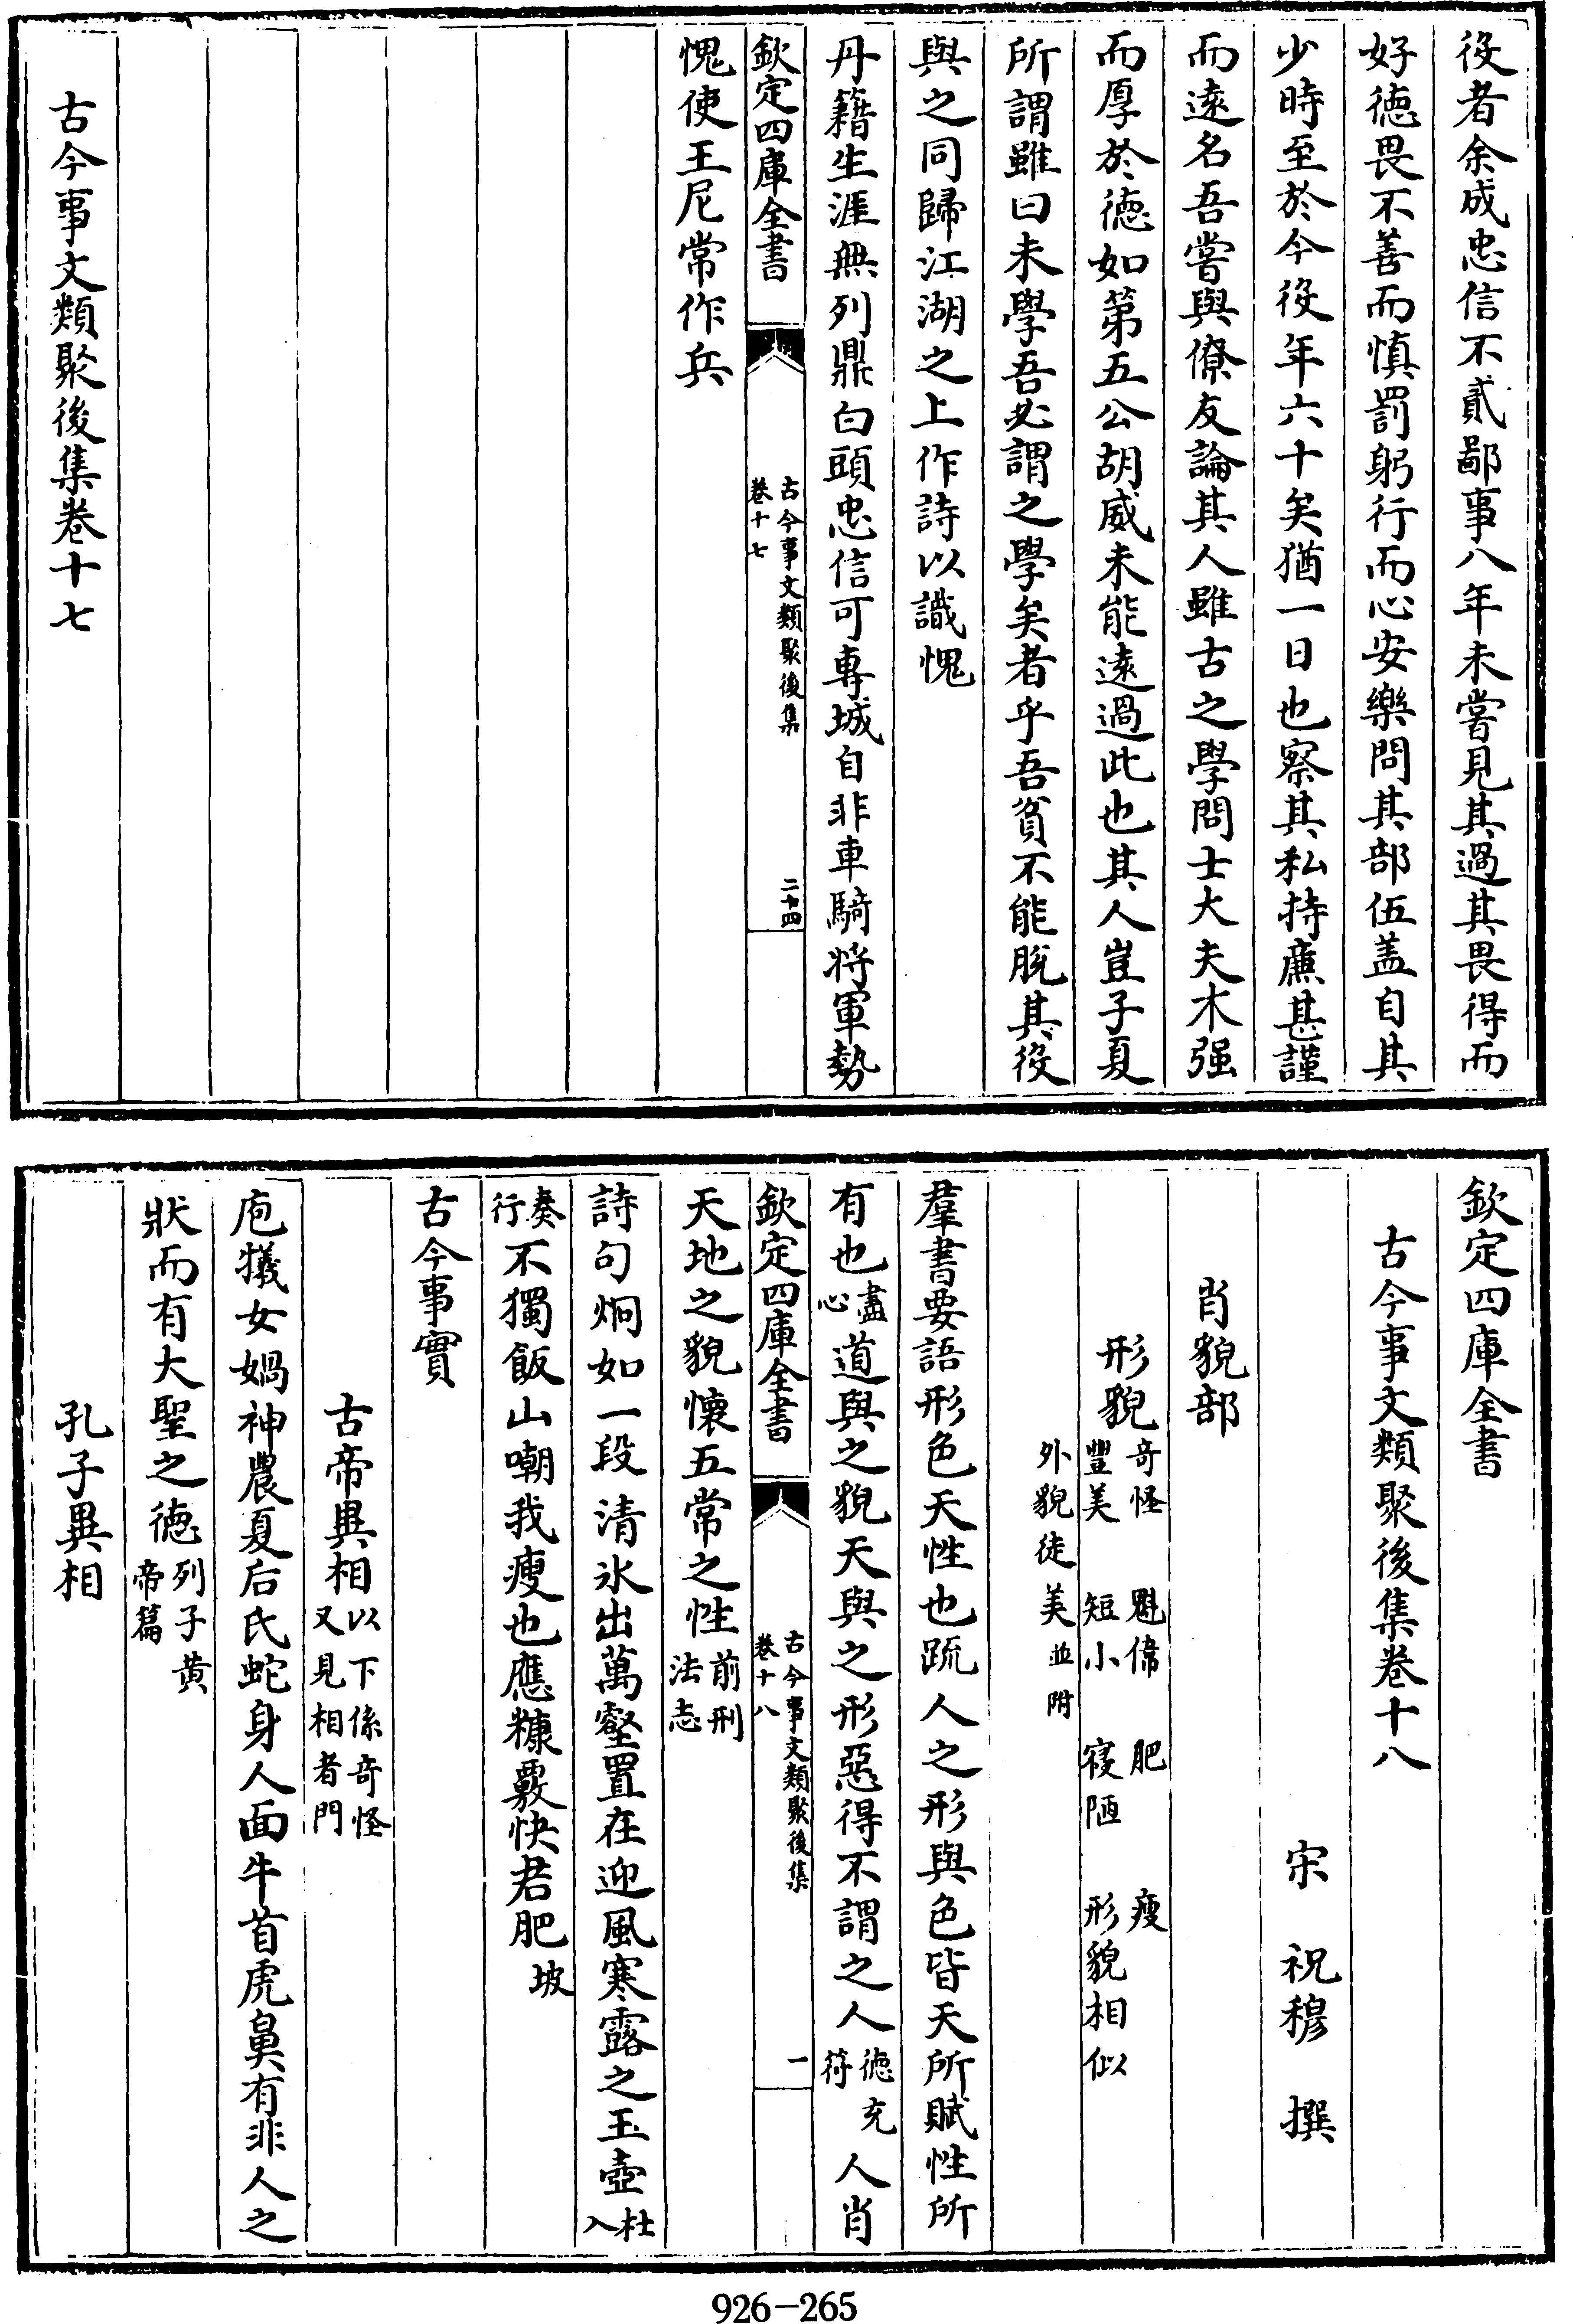 役者余成忠信不貳鄙事八年未嘗見其過其畏得而
好徳畏不善而慎罰躬行而心安樂問其部伍盖自其
少時至於今役年六十矣猶一日也察其私持廉甚謹
而逺名吾嘗與僚友論其人雖古之學問士大夫木强
而厚於徳如第五公胡威未能逺過此也其人豈子夏
所謂雖曰未學吾必謂之學矣者乎吾貧不能脱其役
與之同歸江湖之上作詩以識愧
丹籍生涯無列鼎白頭忠信可専城自非車騎將軍勢
欽定四庫全書
古今事文類聚後集
卷十七
二十四
愧使王尼常作兵
古今事文類聚後集卷十七
欽定四庫全書
古今事文類聚後集卷十八
宋 祝穆 撰
肖貌部
形貌 奇怪 魁偉 肥 瘦
豐美 短小 寝陋 形貌相似
外貌徒美並附
羣書要語形色天性也䟽人之形與色皆天所賦性所
有也盡心道與之貌天與之形惡得不謂之人徳充符人肖
天地之貌懷五常之性前刑法志
詩句炯如一段清氷出萬壑置在迎風寒露之玉壺杜入
奏行不獨飯山嘲我瘦也應糠覈快君肥坡
古今事實
古帝異相以下係奇怪又見相者門
庖犧女媧神農夏后氏蛇身人面牛首虎鼻有非人之
狀而有大聖之徳列子黄帝篇
孔子異相
926-265